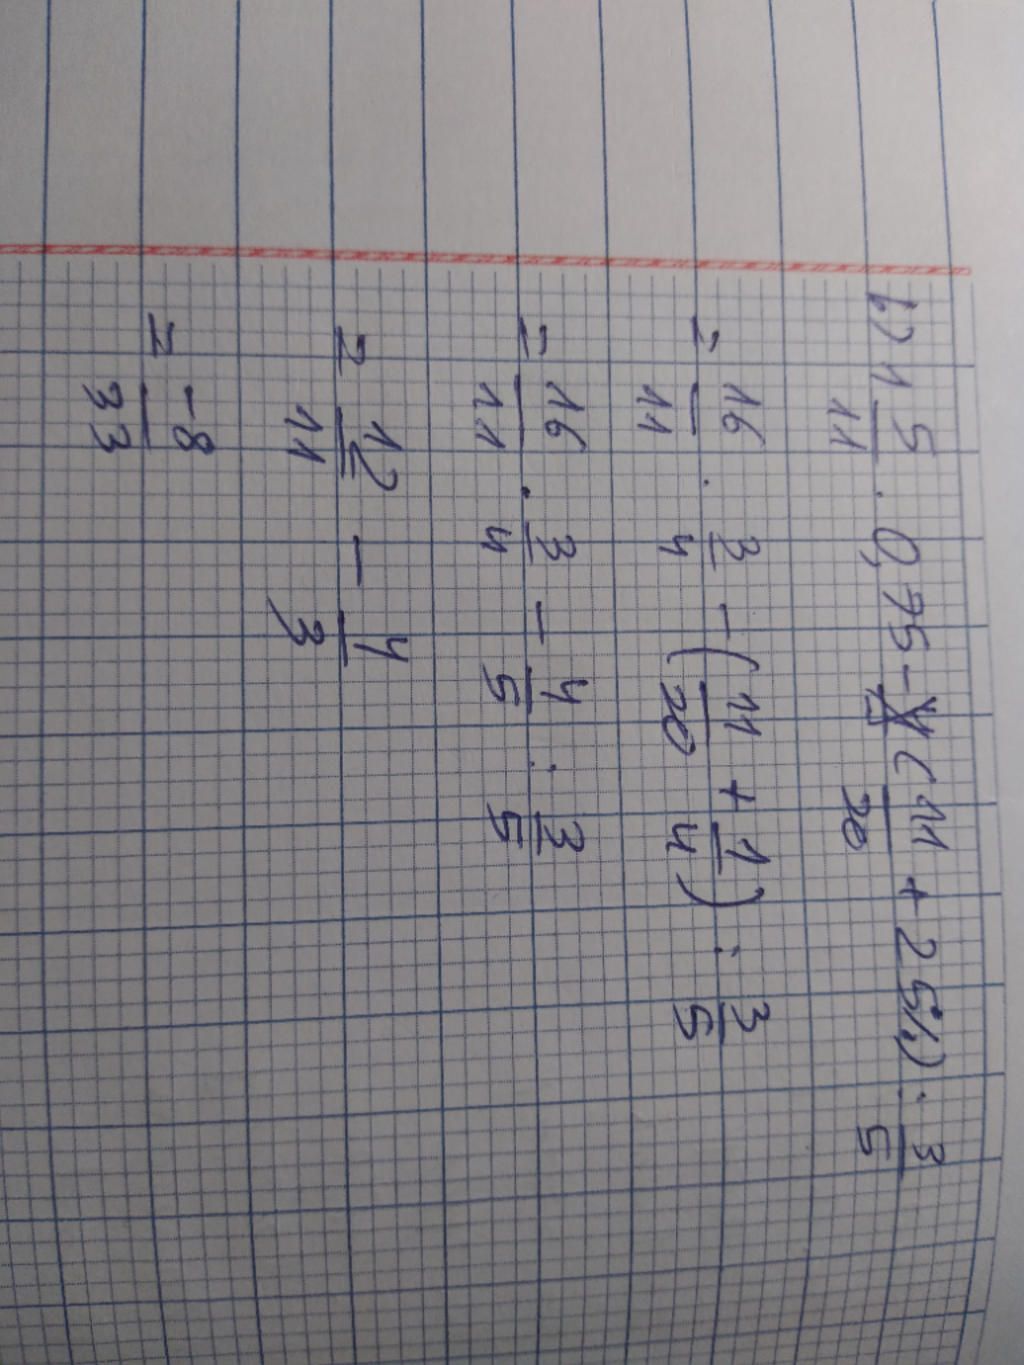 b) 1 5/11 . 0,75 - ( 11/20 + 25%) : 3/5
= 16/11 . 3/4 - ( 11/20 + 1/4 ) : 3/5
= 16/11 . 3/4 - 4/5 : 3/5
= 12/11 - 4/3
= -8/33